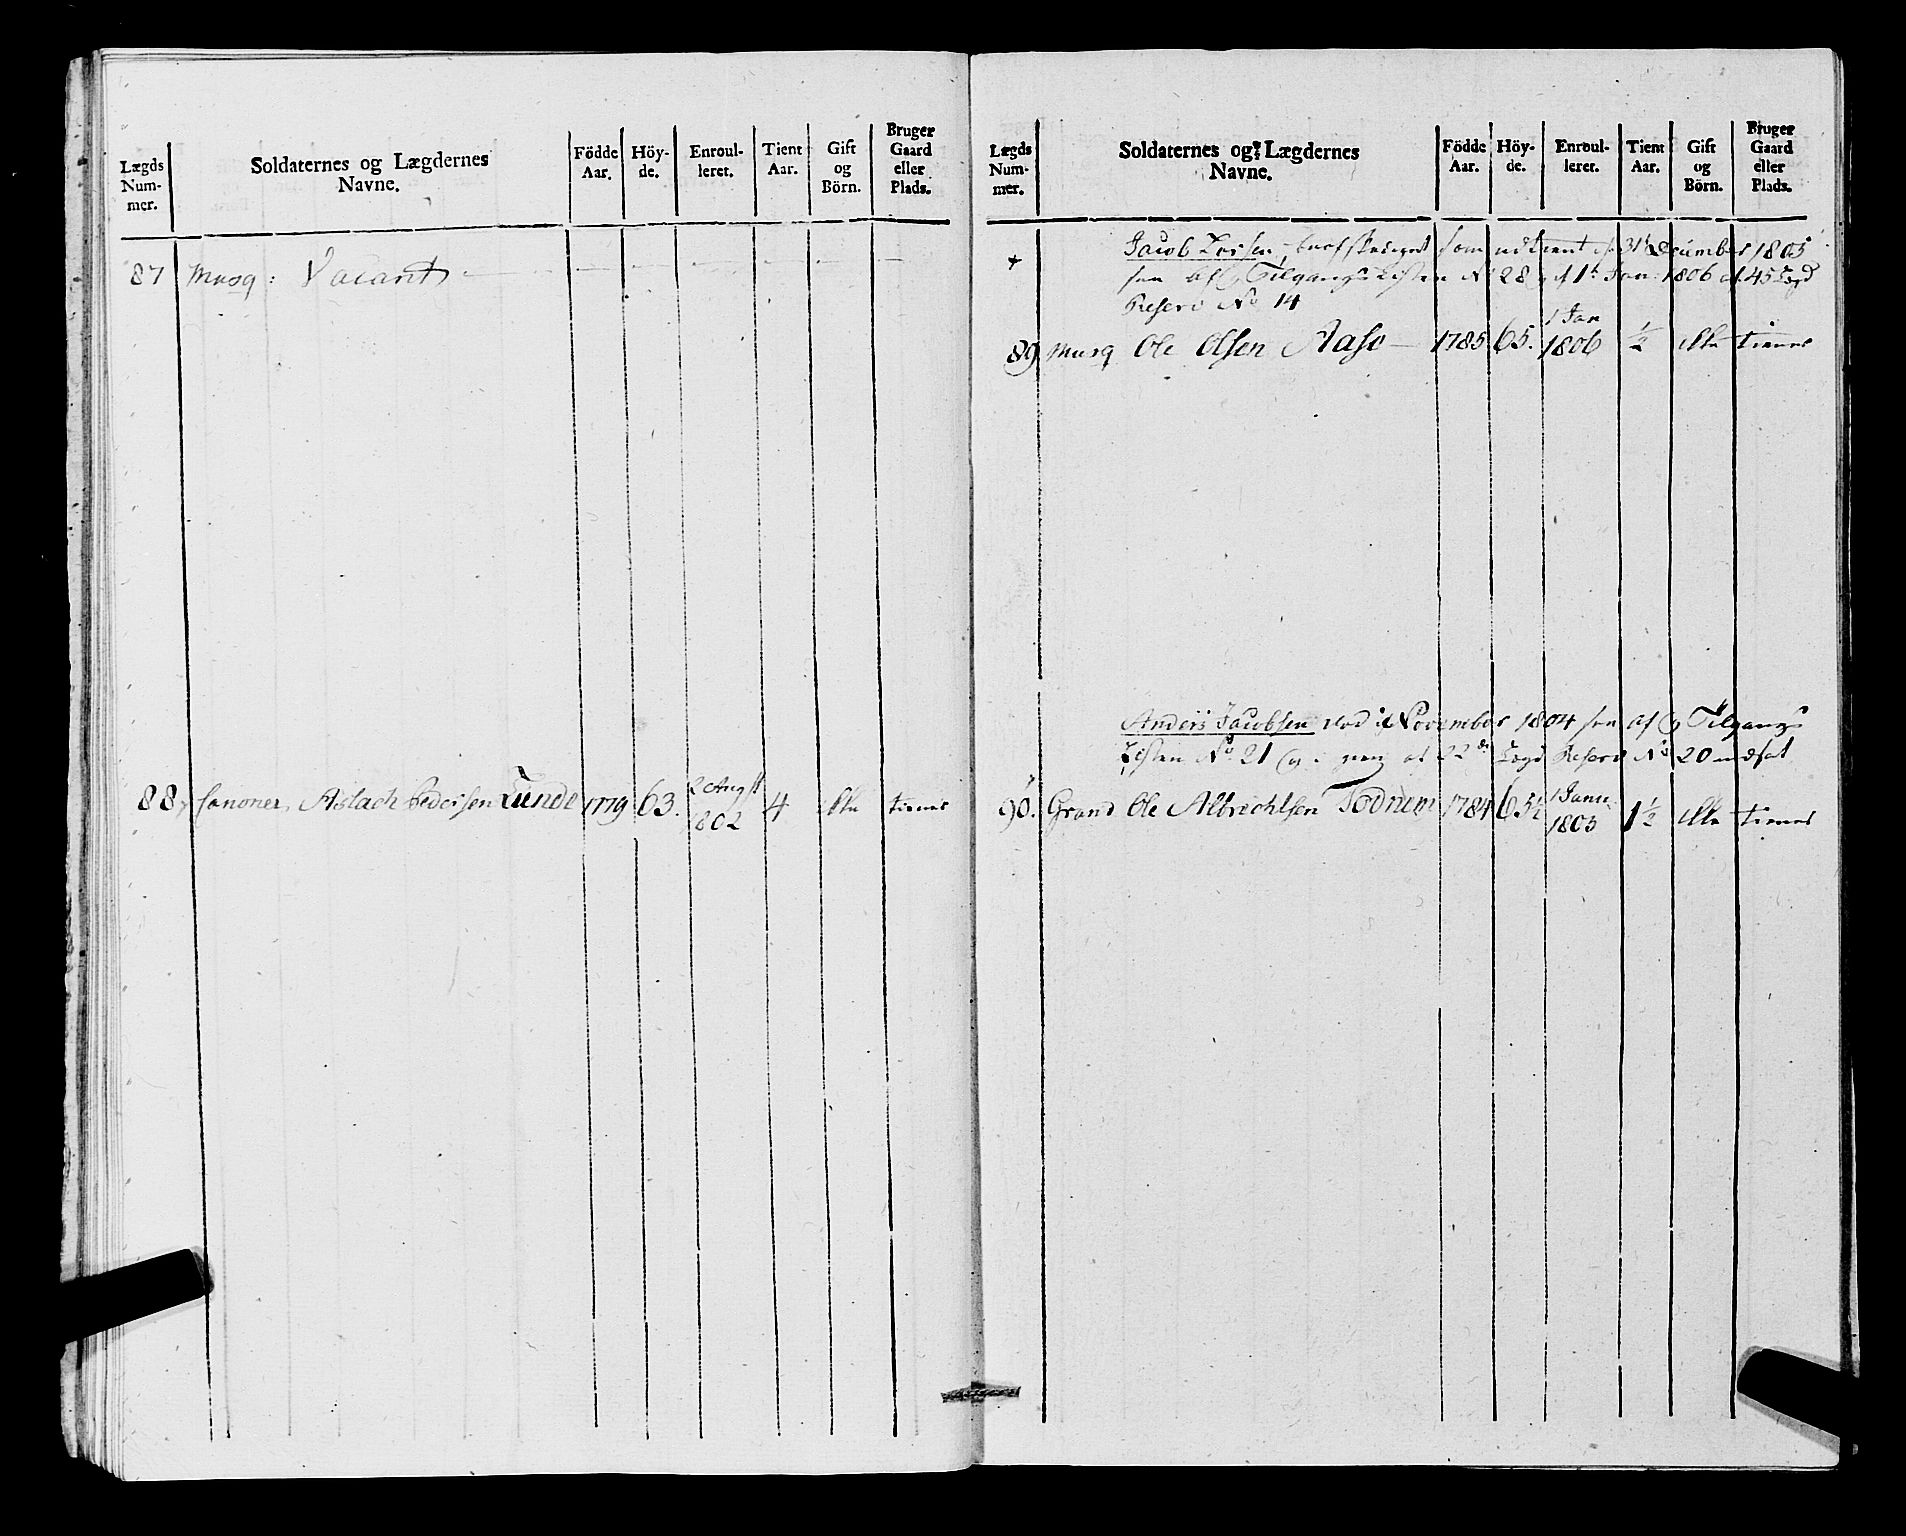 Lægds Num- mer.
Soldaternes og Lægdernes Navne.
Födde Aar.
Höy- de.
Enroul- leret.
Tient Aar.
Gift og Börn.
Bruger Gaard eller Plads.
87 Musq: Vacant
88, Canoner Aslach Pedersen Lunde 1779 63. 2 Augst 1802 4 tiener
Lægds Num- mer.
Soldaternes og Lægdernes Navne.
Födde Aar.
Höy- de.
Enroul- leret.
Tient Aar.
Gift og Börn.
Bruger Gaard eller Plads.
Jacob som udtient 31t December 1805
see af og Tilgangs Listen No 28 1t Jan: 1806 af 45 Lægd
Reserv No 14
89 Musq Ole Olsen Aase 1785 65. 1 Jan 1806 ½ tiener
Anders Jacobsen död i November 1804 see af og Tilgangs
Listen No 21 og igien af 22de Lægd Reserv No 20 indsat
90. Grand Ole Albrechtsen Todnem 1784 65½ 1 Janu: 1805 1½ tiener